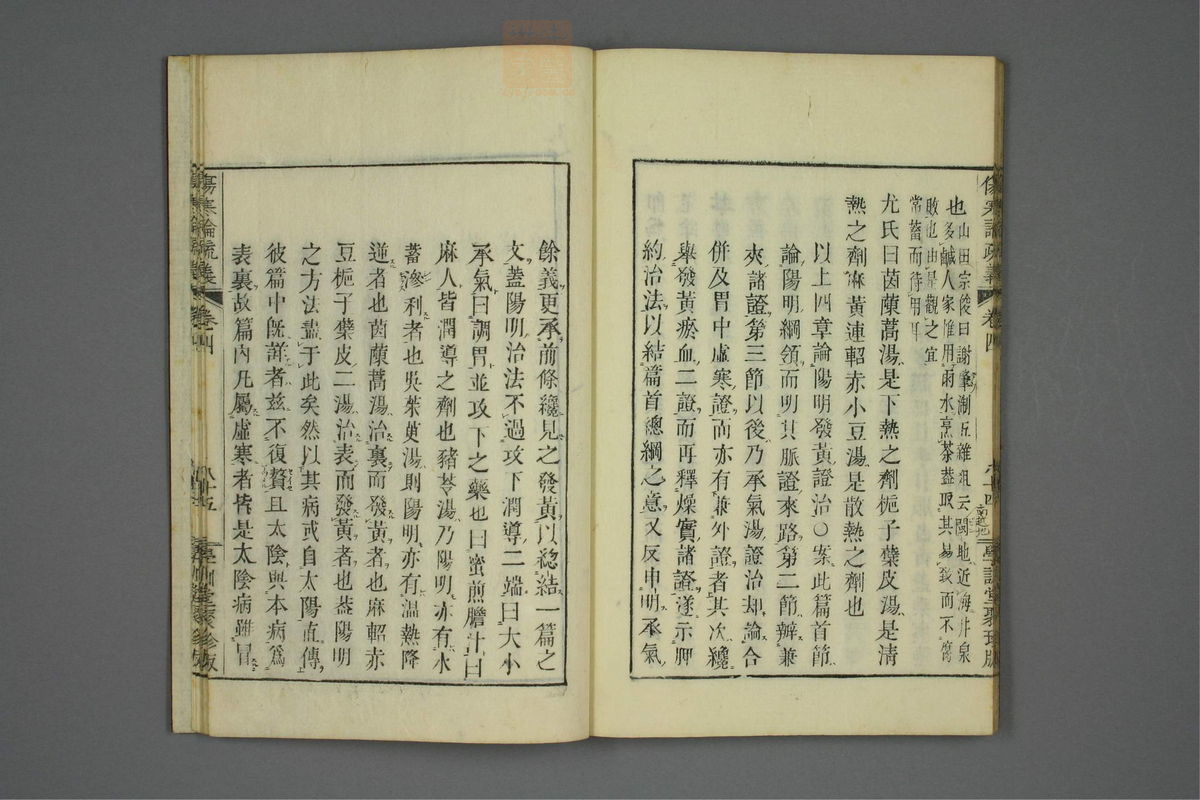 也山田宗俊曰謝肇淛五雜俎云閩地近海井泉
多鹹人家惟用雨水烹茶蓋取其易致而不腐
敗也由是觀之宜
常蓄而待用耳
尤氏曰茵蔯蒿湯是下熱之劑梔子蘗皮湯是清
熱之劑麻黃連軺赤小豆湯是散熱之劑也
以上四章論陽明發黃證治〇案此篇首節
論陽明綱領而明其脈證來路第二節辨兼
夾諸證第三節以後乃承氣湯證治却論合
併及胃中虛寒證而亦有兼外證者其次纔
舉發黃瘀血二證而再釋燥實諸證遂示脾
約治法以結篇首總綱之意又反申明承氣
傷寒論疏義 卷四
餘義更承前條纔見之發黃以總結一篇之
文蓋陽明治法不過攻下潤導二端曰大小
承氣曰調胃並攻下之藥也曰蜜煎膽汁曰
麻人皆潤導之劑也豬苓湯乃陽明亦有水
蓄滲利者也吳茱萸湯則陽明亦有溫熱降
逆者也茵蔯蒿湯治裏而發黃者也麻軺赤
豆梔子蘗皮二湯治表而發黃者也蓋陽明
之方法盡于此矣然以其病或自太陽直傳
彼篇中旣詳者玆不復贅且太陰與本病爲
表裏故篇內凡屬虛寒者皆是太陰病雖冒
傷寒論疏義 卷四